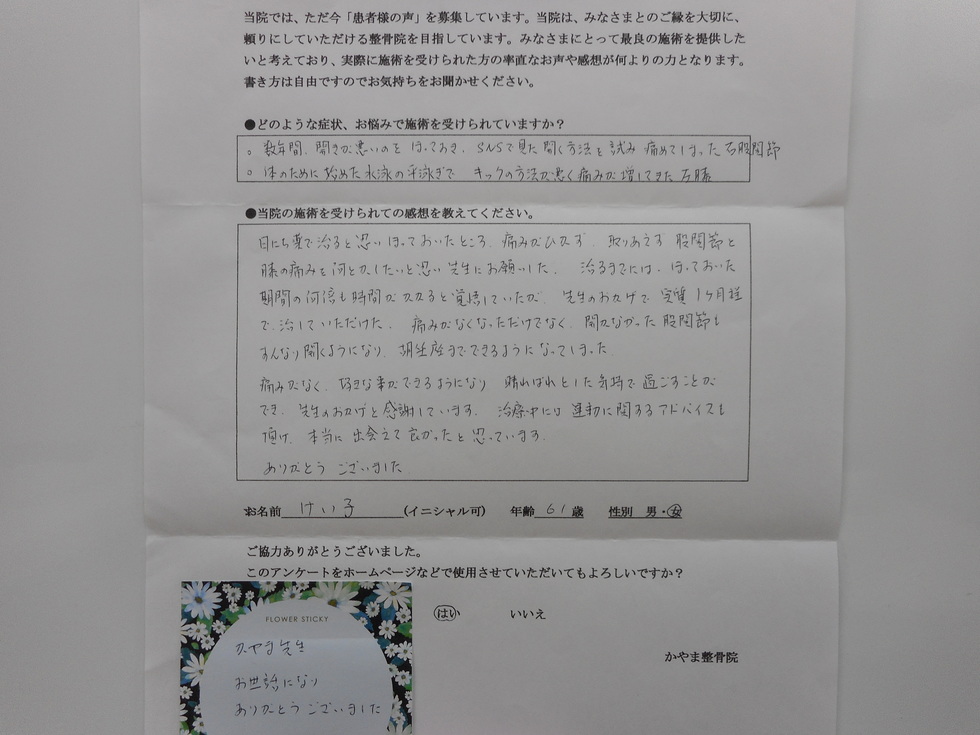 当院では、ただ今「患者様の声」を募集しています。当院は、みなさまとのご縁を大切に、
頼りにしていただける整骨院を目指しています。みなさまにとって最良の施術を提供した
いと考えており、実際に施術を受けられた方の率直なお声や感想が何よりの力となります。
書き方は自由ですのでお気持ちをお聞かせください。
●どのような症状、お悩みで施術を受けられていますか？
○ 数年間、開きが悪いのを ほっておき、SNSで見た開く方法を試み 痛めてしまった 右股関節
○ 体のために始めた水泳の平泳ぎで キックの方法が悪く痛みが増してきた左膝
●当院の施術を受けられての感想を教えてください。
日にち薬で治ると思いほっておいたところ、痛みがひかず、取りあえず 股関節と
膝の痛みを何とかしたいと思い先生にお願いした。 治るまでには、ほっておいた
期間の何倍も時間がかかると覚悟していたが、先生のおかげで 実質 1ヶ月程
で治していただけた。 痛みがなくなっただけでなく、開かなかった 股関節も
すんなり開くようになり、胡坐座までできるようになってしまった。
痛みがなく、好きな事ができるようになり 晴ればれとした気持で過ごすことが
でき、先生のおかげと感謝しています。 治療中には運動に関するアドバイスも
頂け、本当に出会えて良かったと思っています。
ありがとう ございました
お名前 けい子 (イニシャル可) 年齢 61 歳 性別 男・女
ご協力ありがとうございました。
このアンケートをホームページなどで使用させていただいてもよろしいですか？
はい いいえ
かやま整骨院
FLOWER STICKY
かやま先生
お世話になり
ありがとうございました